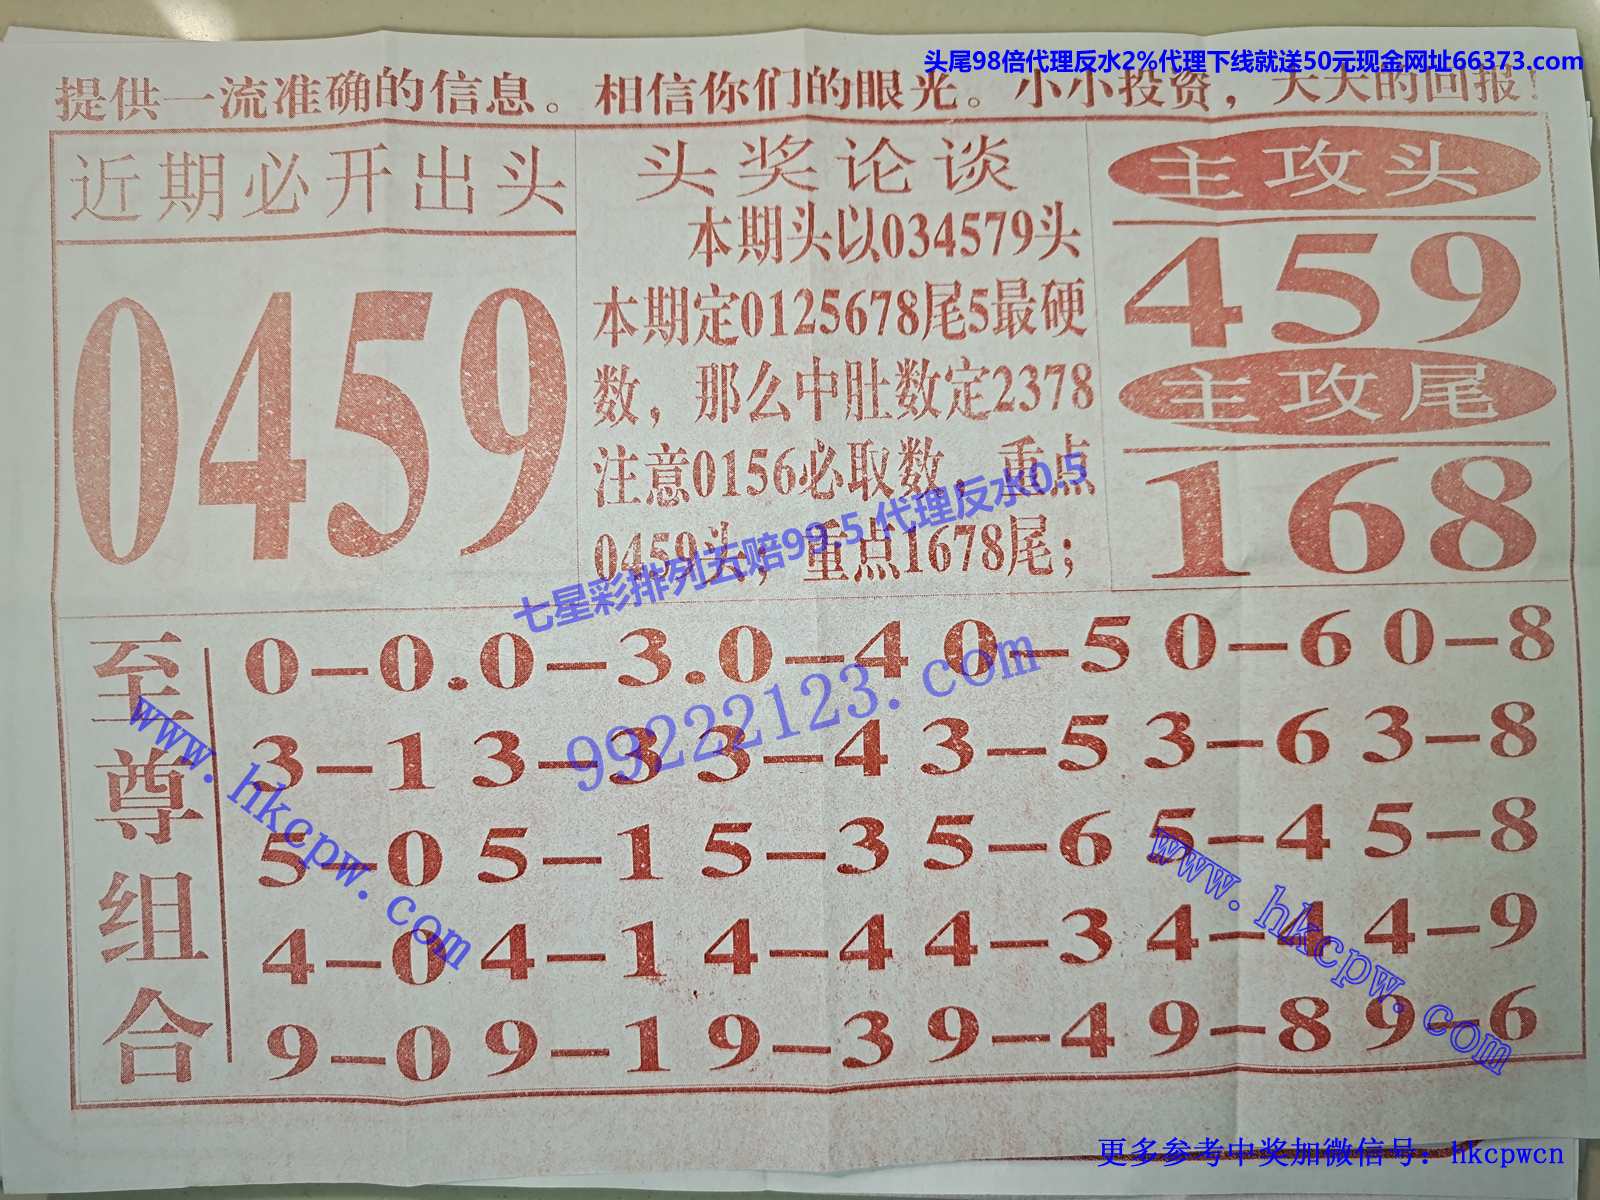 头尾98倍代理反水2%代理下线就送50元现金网址66373.com
提供一流准确的信息。相信你们的眼光。小小投资，天天的回报！
近期必开出头
0459
头奖论谈
本期头以034579头
本期定0125678尾5最硬
数，那么中肚数定2378
注意0156必取数，重点
0459头；重点1678尾；
主攻头
459
主攻尾
168
七星彩排列五赔99.5代理反水0.5
99222123.com
至尊组合
0-0.0-3.0-4 0-5 0-6 0-8
3-1 3-3 3-4 3-5 3-6 3-8
5-0 5-1 5-3 5-6 5-4 5-8
4-0 4-1 4-4 4-3 4-4 4-9
9-0 9-1 9-3 9-4 9-8 9-6
www.hkcpw.com
www.hkcpw.com
更多参考中奖加微信号：hkcpwcn